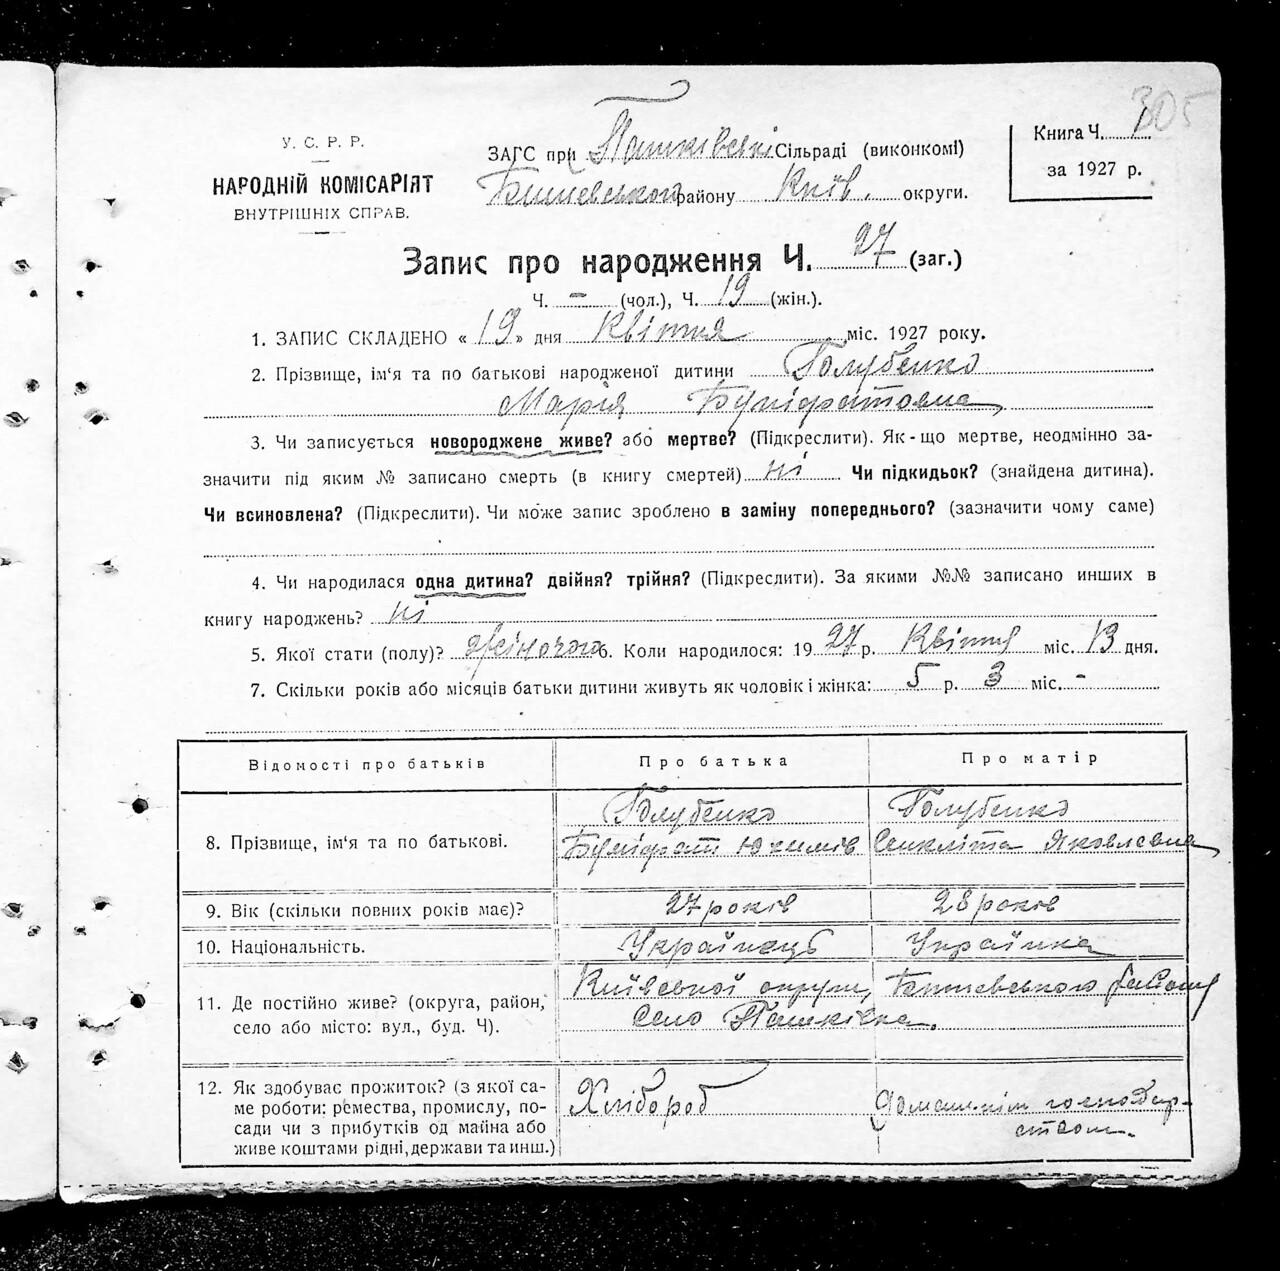 305
У. С. Р. Р.
НАРОДНІЙ КОМІСАРІЯТ
ВНУТРІШНІХ СПРАВ.
ЗАГС при Пашківські Сільраді (виконкомі)
Бишевського району Київ. округи.
Книга Ч. 1
за 1927 р.
Запис про народження Ч. 27 (заг.)
Ч. - (чол.), Ч. 19 (жін.).
1. ЗАПИС СКЛАДЕНО « 19 » дня Квітня міс. 1927 року.
2. Прізвище, ім'я та по батькові народженої дитини Голубенко
Марія Буніфатовна
3. Чи записується новороджене живе? або мертве? (Підкреслити). Як-що мертве, неодмінно за-
значити під яким № записано смерть (в книгу смертей) ні Чи підкидьок? (знайдена дитина).
Чи всиновлена? (Підкреслити). Чи може запис зроблено в заміну попереднього? (зазначити чому саме)
4. Чи народилася одна дитина? двійня? трійня? (Підкреслити). За якими №№ записано инших в
книгу народжень? ні
5. Якої стати (полу)? жіночого 6. Коли народилося: 19 27 р. Квітня міс. 13 дня.
7. Скільки років або місяців батьки дитини живуть як чоловік і жінка: 5 р. 3 міс. -
Відомості про батьків
Про батька
Про матір
8. Прізвище, ім'я та по батькові.
Голубенко
Буніфат Юхимів
Голубенко
Синкліта Яковлевна
9. Вік (скільки повних років має)?
27 років
28 років
10. Національність.
Українець
Українка
11. Де постійно живе? (округа, район,
село або місто: вул., буд. Ч).
Київської округи, Бишевського району
село Пашківка.
12. Як здобуває прожиток? (з якої са-
ме роботи: ремества, промислу, по-
сади чи з прибутків од майна або
живе коштами рідні, держави та инш.)
Хлібороб
Домашнім господар-
ством.